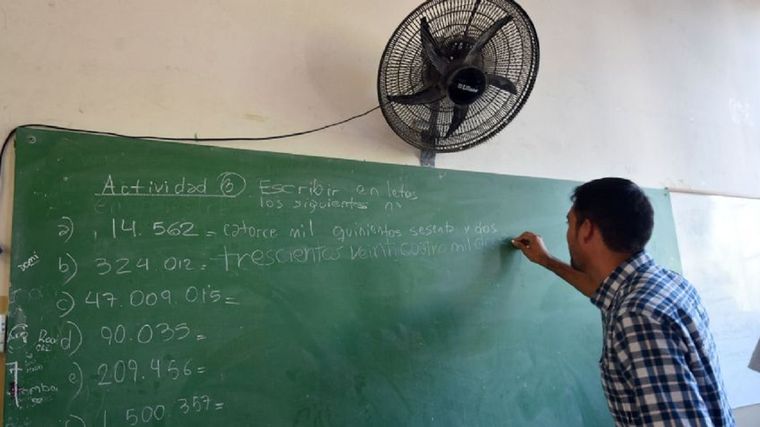 Actividad ⑥ Escribir en letas
los siguientes nº
a) 14.562 = catorce mil quinientos sesenta y dos
b) 324.012 = trescientos veinticuatro mil d
c) 47.009.015 =
d) 90.035 =
e) 209.456 =
1.500.357 =